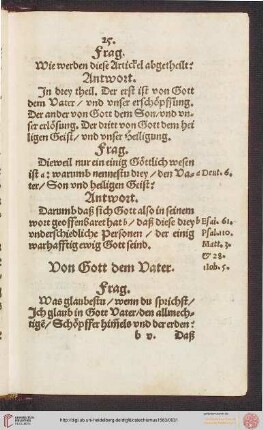 25.
Frag.
Wie werden diese Artickel abgetheilt?
Antwort.
In drey theil. Der erst ist von Gott
dem Vater / vnd vnser erschöpffung.
Der ander von Gott dem Son / vnd vn-
ser erlösung. Der dritt von Gott dem hei
ligen Geist / vnd vnser Heiligung.
Frag.
Dieweil nur ein einig Göttlich wesen
ist a: warumb nennestu drey / den Va- a Deut. 6.
ter / Son vnd heiligen Geist?
Antwort.
Darumb daß sich Gott also in seinem
wort geoffenbaret hat b / daß diese drey b Esai. 61.
vnderschiedliche Personen / der einig Psal. 110.
warhafftig ewig Gott seind. Matt. 3.
& 28.
Von Gott dem Vater. 1 Ioh. 5.
Frag.
Was glaubestu / wenn du sprichst /
Ich glaub in Gott Vater / den allmech-
tigē / Schöpffer him̄els vnd der erden?
b v. Daß